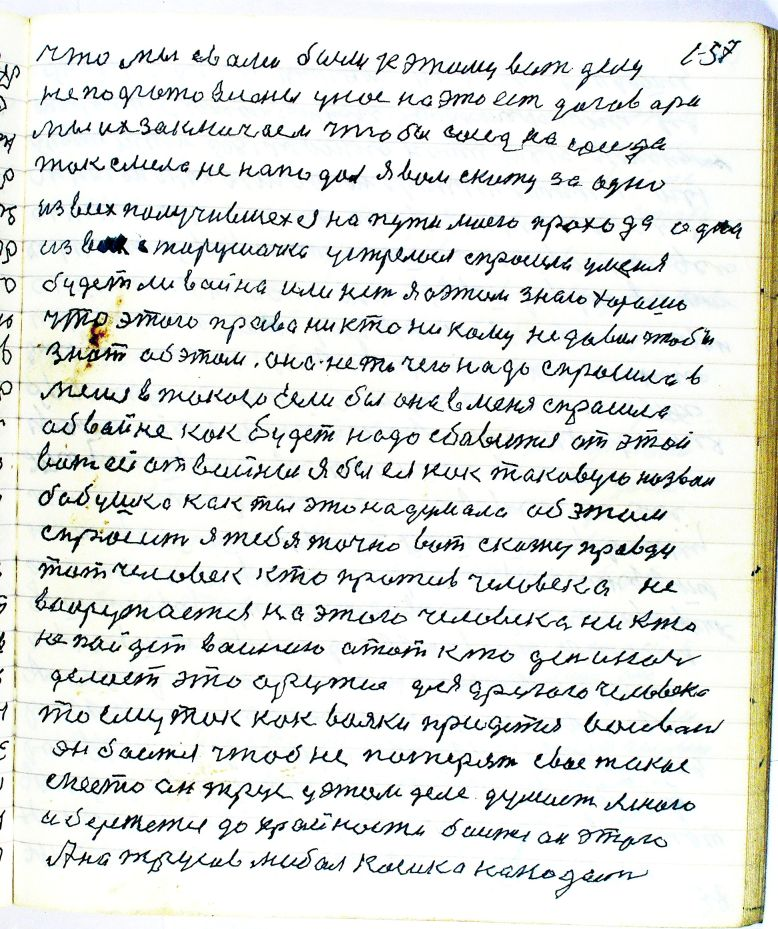 1-57
что мы свами были к этому вот делу
не подготовлены унас на это ест догавара
мы их заключаем чтобы сосед на соседа
так смела не наподал я вам скажу за одно
из всех получившехся на пути моего прохода одна
из вас старушачка устрелася спросила уменя
будет ли вайна или нет я оэтом знаю хорошо
что этого права никто никому не давал чтобы
знат об этом. она не то чего надо спросила в
меня в такого если бы она вменя спрасила
обвайне как будет надо сбавится от этой
вот ей отвайны я бы ея как таковую назвал
бабушка как ты это надумала об этом
спросит я тебя точно вот скажу правду
тот человек кто против человека не
вооружается на этого человека никто
не пайдет ваиною атот кто
делает это аружие для другого человека
то ему так как вояки придется воеват
он баится чтоб не потерят свае такое
место он трус уэтом деле думает много
аберегется до крайности баится он этого
Ана трусов любая кошка нападает